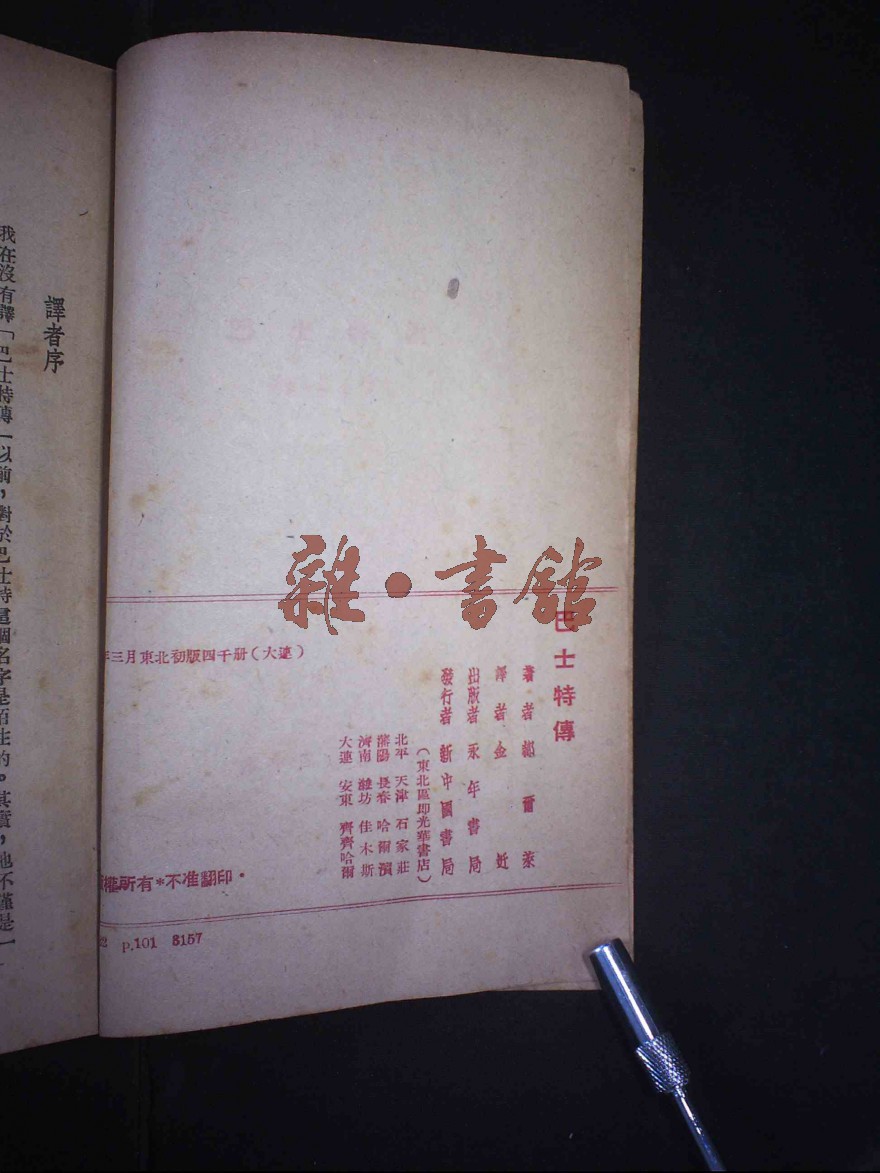 巴士特傳
著者 都爾萊
譯者 金近
出版者 永年書局
發行者 新中國書局
(東北區即光華書店)
北平 天津 石家莊
瀋陽 長春 哈爾濱
濟南 濰坊 佳木斯
大連 安東 齊齊哈爾
年三月東北初版四千册(大連)
權所有*不准翻印·
p.101 3157
雜·書館
譯者序
我在沒有譯「巴士特傳」以前,對於巴士特這個名字是陌生的。其實,他不僅是一